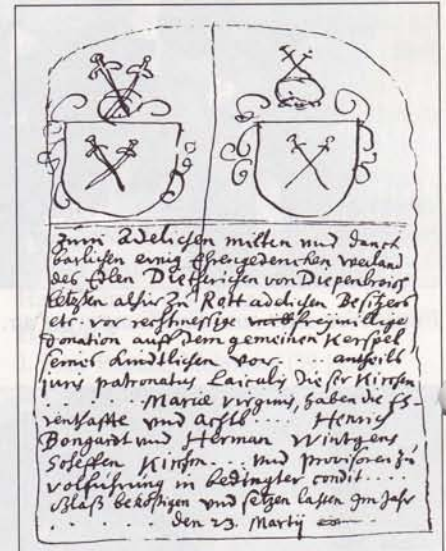 Zum Adelichen milten und danck
barlichen ewig Ehrengedencken weiland
des Edlen Dietherichen von Diepenbroich
letzten alhir zu Rott adelichen Besitzers
etc. vor rechtmessige freymillige
donation auff dem gemeinen Kerspel
seines Kindtlichen vor.... antheils
juris patronatus Laiculis dieser Kirchen
........ Mariae virginis, haben die Eh-
renthaffte und Achtb.... Henrich
Bongardt und Herman Wintgens
Scheffen Kirchm.... und Provisoren zu
volführung in bedingter condit.....
bekostigen und setzen lassen Im Jahr
...... den 23. Martij